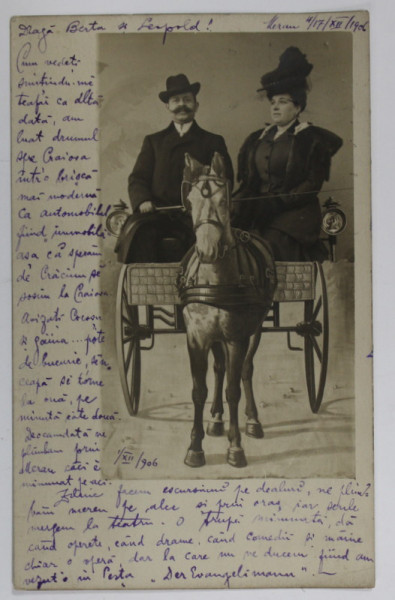 Dragă Berta și Leopold!
Meran 4/17/XII/906
Cum vedeți
simțindu-mă
teafăr ca altă
dată, am
luat drumul
spre Craiova
într'o brișcă
mai modernă
ca automobilul
fiind immobilă
așa că sperăm
de Crăciun să
sosim la Craiova
Avizați Cocoșu
și găina... pote
de bucurie, să
ceapă să tórne
la ouă, pe
minută câte două
Deocamdată ne
plimbăm prin
Meran căci e
minunat pe aci.
1/XII/906
Zilnic facem escursiuni pe dealuri, ne plimbăm
mereu pe alee și prin oraș iar serile
mergem la teatru. O trupă minunată, dă
când operete, când drame, când comedii și mâine
chiar o operă, dar la care nu ne ducem fiind am
vezut'o in Pesta „Der Evangelimann".